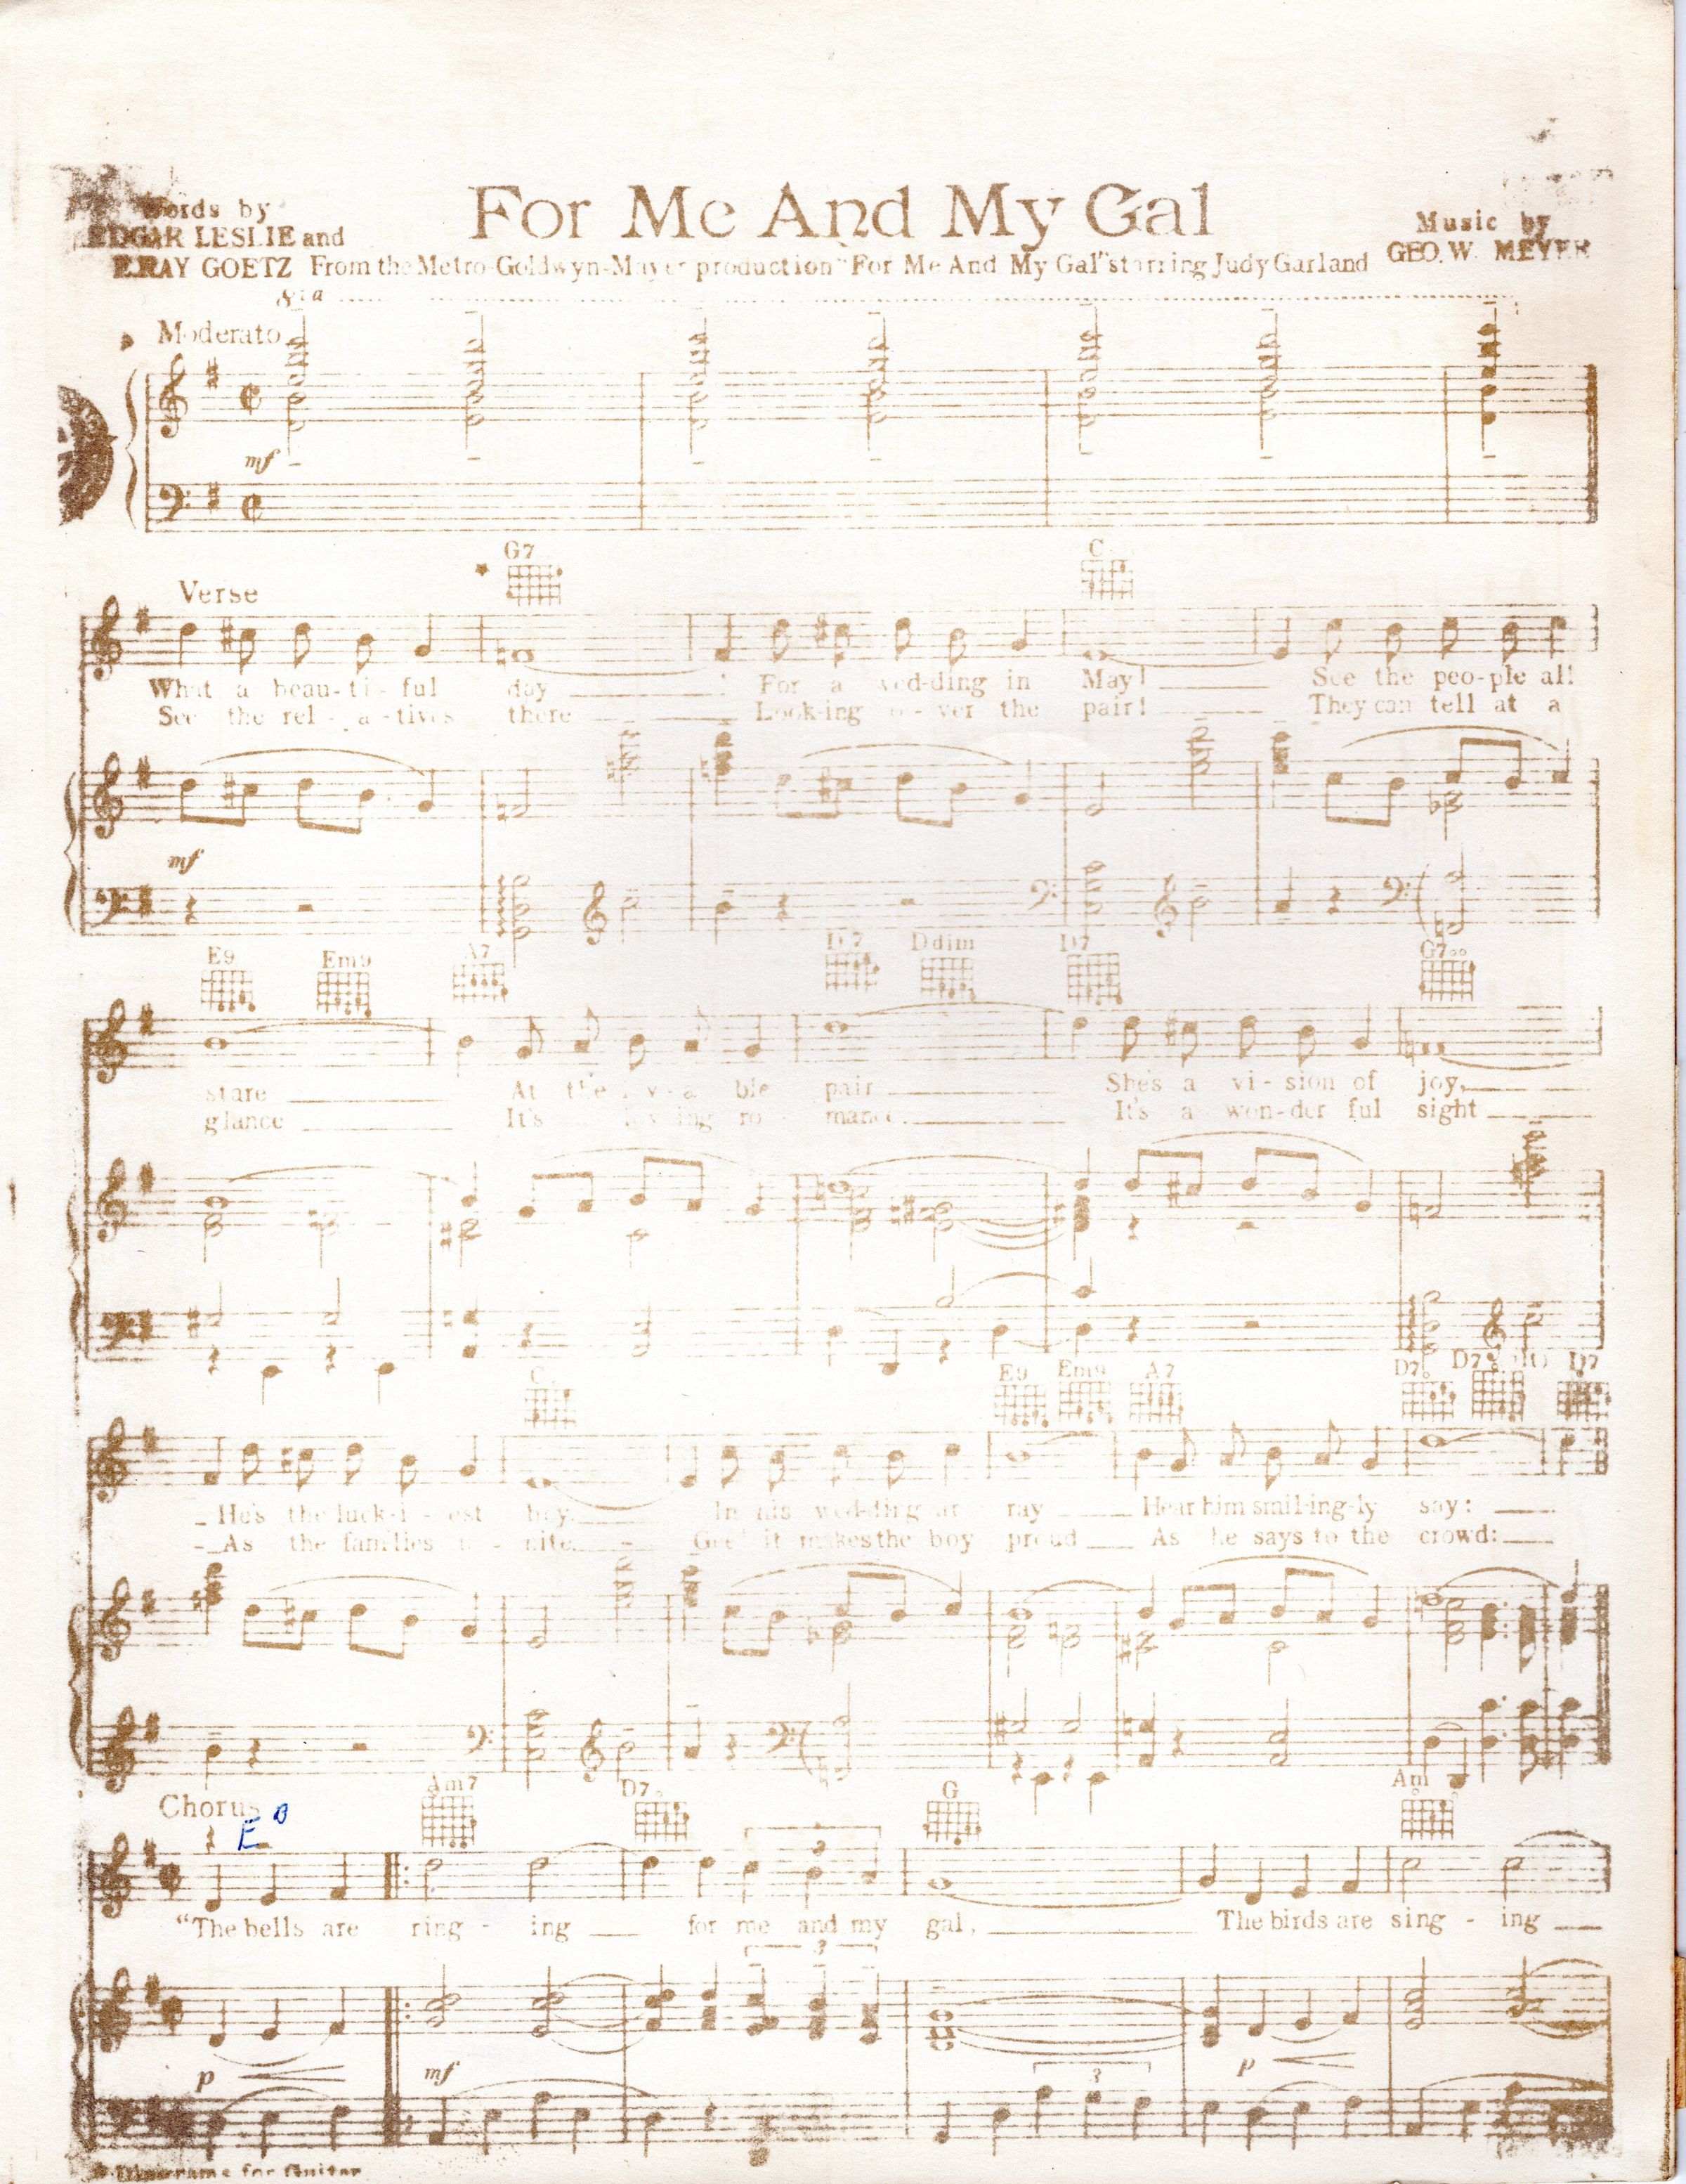 For Me And My Gal
Words by
EDGAR LESLIE and
E. RAY GOETZ
From the Metro-Goldwyn-Mayer production "For Me And My Gal" starring Judy Garland
Music by
GEO. W. MEYER
8va
Moderato
mf
G7 C
Verse
What a beau-ti-ful day For a wed-ding in May! See the peo-ple all
See the rel-a-tives there Look-ing o-ver the pair! They can tell at a
mf
E9 Em9 A7 D7 Ddim D7 G7
stare At the pair She's a vi-sion of joy,
glance It's ro mance. It's a won-der ful sight
C E9 Em9 A7 D7 D7
He's the luck-i-est boy. In his wed-ding ar ray Hear him smil-ing-ly say:
As the families nite. Gee it makes the boy proud As he says to the crowd:
Chorus Am7 D7 G Am
E B
3
"The bells are ring - ing for me and my gal, The birds are sing - ing
3
p mf p
3
Diagrams for Guitar